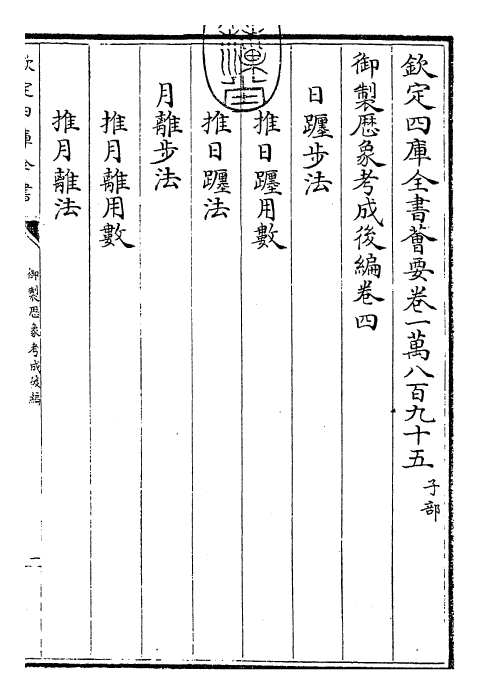 欽定四庫全書薈要卷一萬八百九十五 子部
御製厯象考成後編卷四
日躔步法
推日躔用數
推日躔法
月離步法
推月離用數
推月離法
欽定四庫全書
御製厯象考成後編